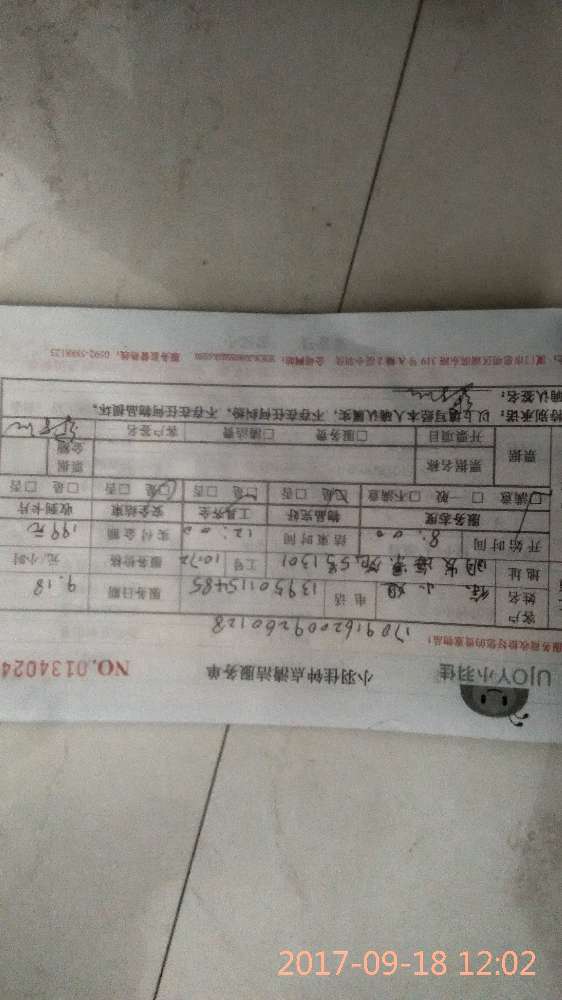 UJOY小羽佳 小羽佳钟点清洁服务单 NO.0134024
服务前收捡好您的贵重物品! 1709162009260128
客户 姓名 小姐 电话 13950115485 服务日期 9.18
地址 海景苑5号1301 工号 1072 服务价格 元/小时
开始时间 8:00 结束时间 12:00 实付金额 199元
服务态度 物品完好 工具齐全 安全检查 收到卡片
□满意 □一般 □不满意 □是 □否 □是 □否 □是 □否 □是 □否
票据 票据名称 票据金额
开票项目 □服务费 □清洁费 客户签名
特别承诺:以上填写经本人确认属实,不存在任何纠纷,不存在任何物品损坏。
确认签名:
厦门市思明区湖滨东路319号A幢2层小羽佳 公司网站: 服务监督热线:0592-
2017-09-18 12:02